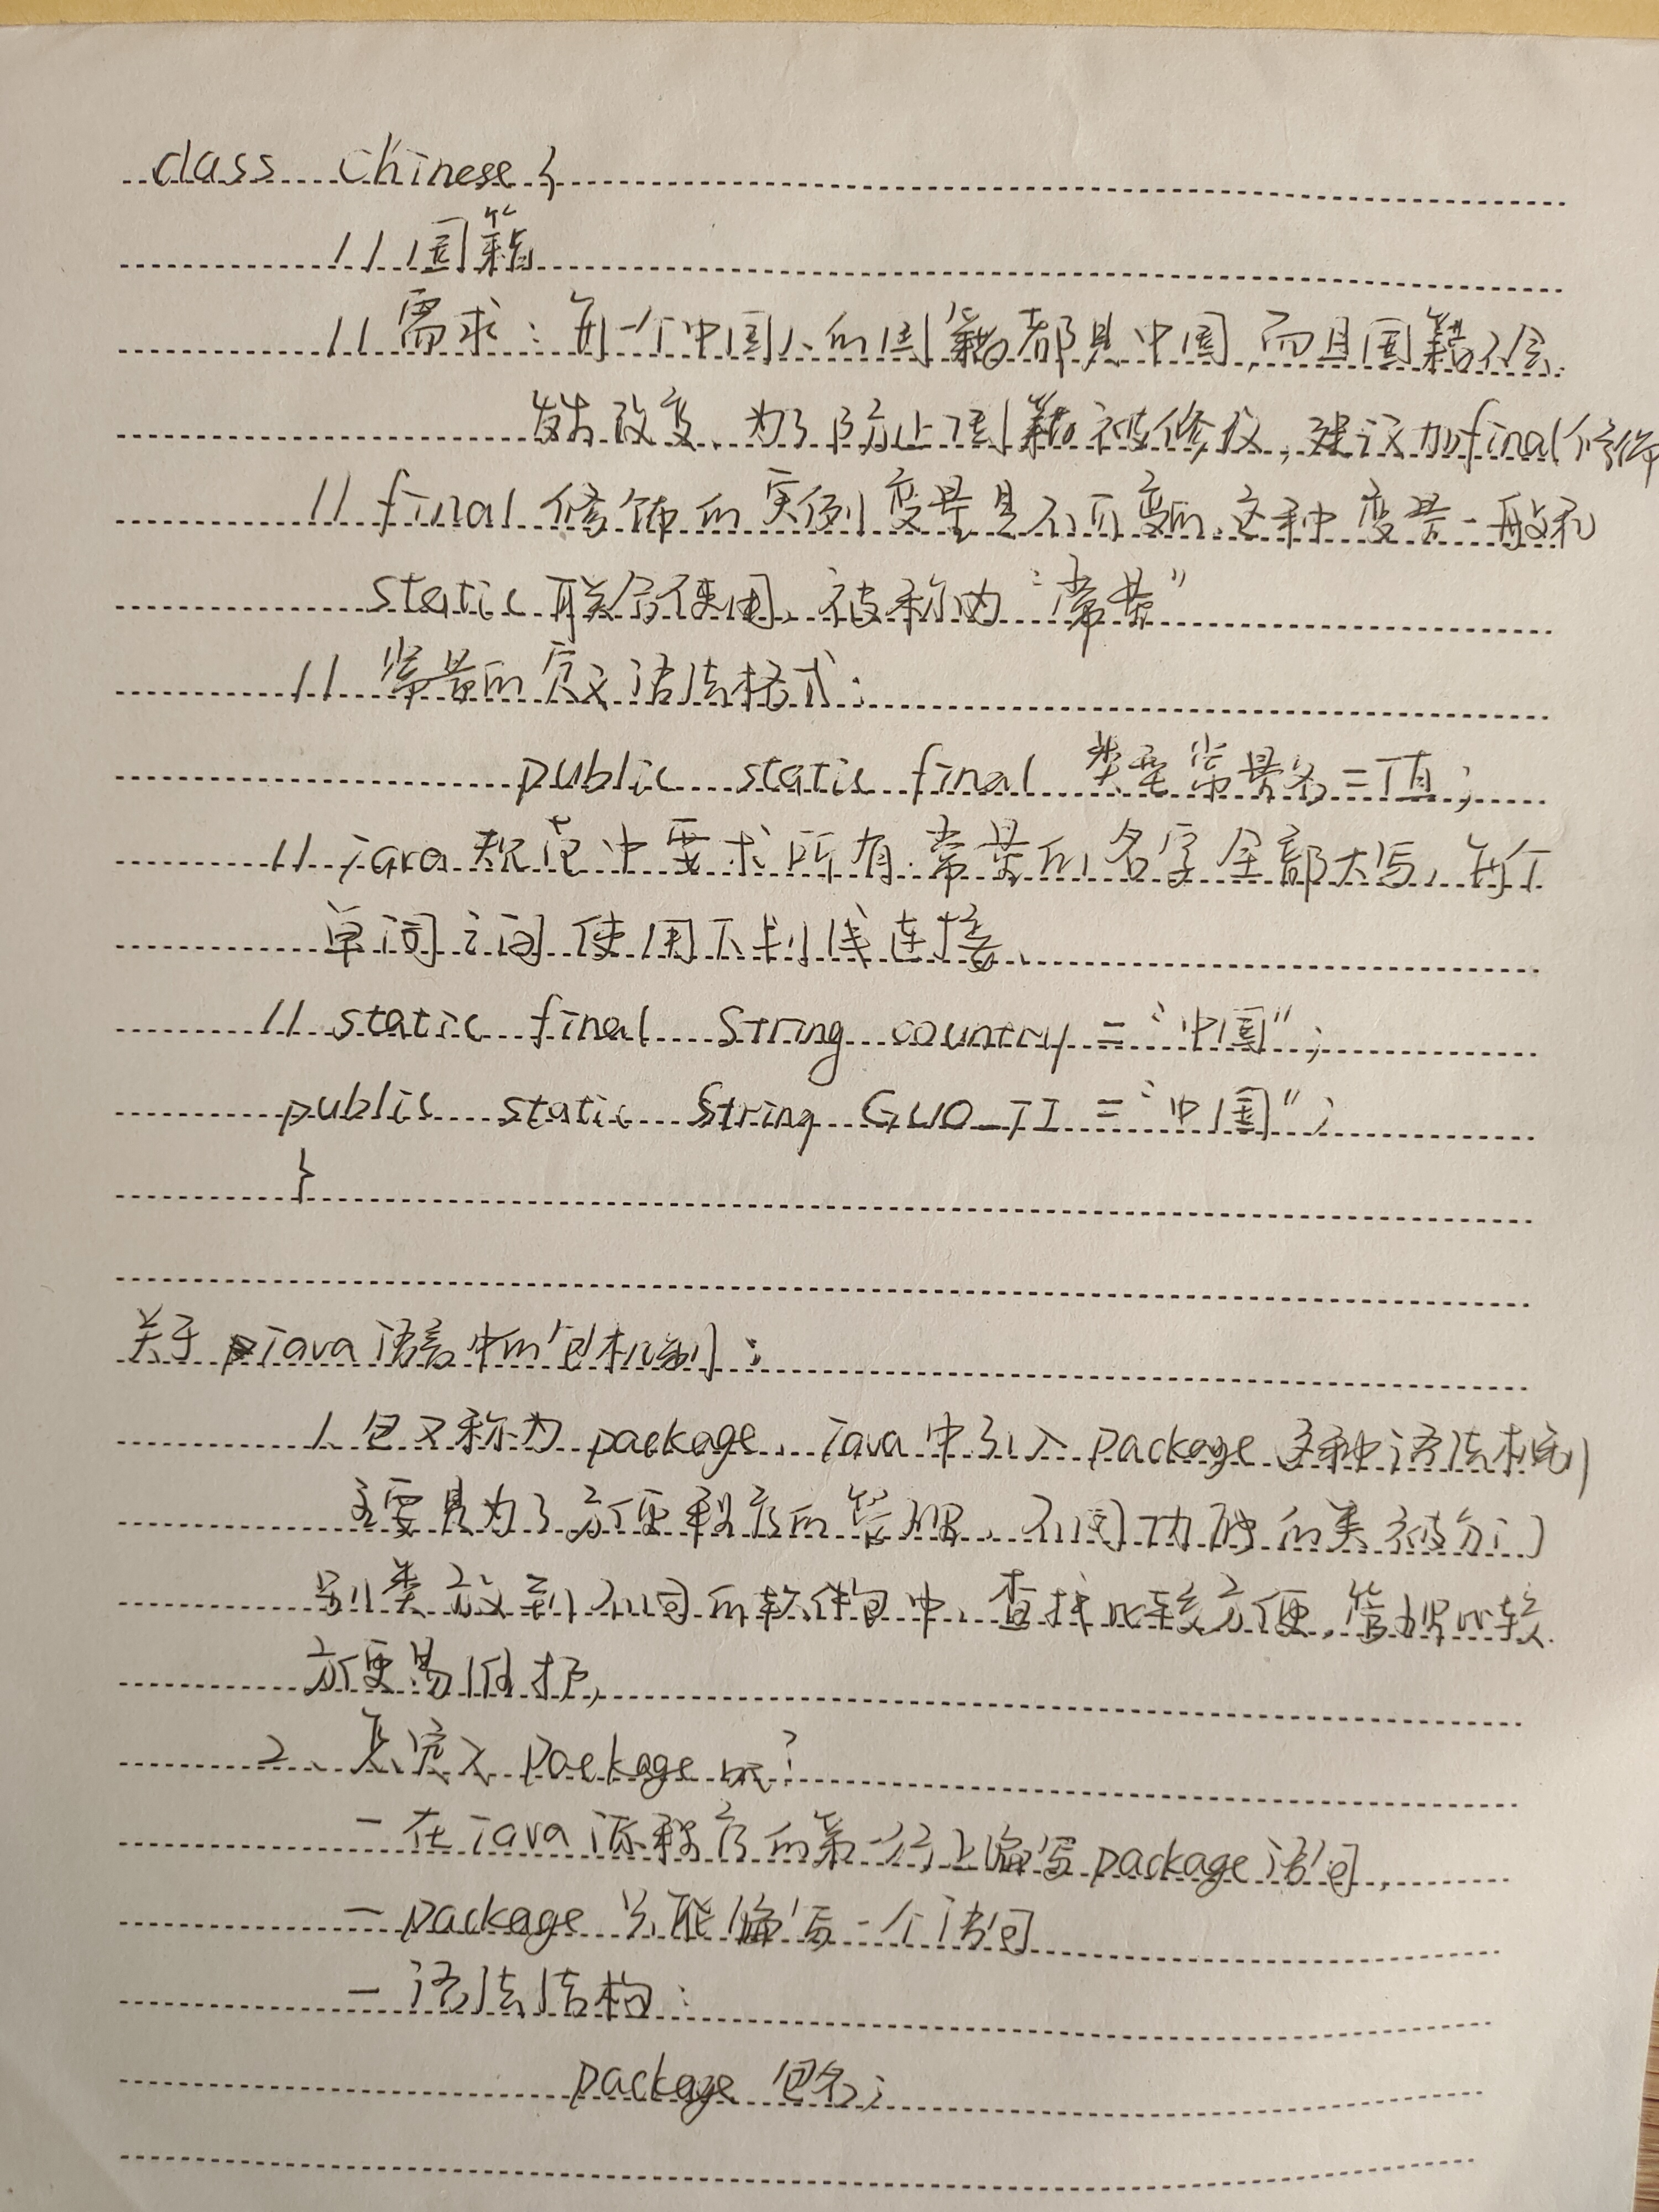 class Chinese {
// 国籍
// 需求：每一个中国人的国籍都是中国，而且国籍不会
发生改变、为了防止国籍被修改，建议加final修饰
// final 修饰的实例变量是不可变的、这种变量一般和
static 联合使用、被称为“常量”
// 常量的定义语法格式：
public static final 类型 常量名 = 值；
// java 规范中要求所有常量的名字全部大写、每个
单词之间使用下划线连接、
// static final String country = “中国”；
public static String GUO_JI = “中国”；
}
关于 java 语言中的包机制：
1、包又称为 package、java 中引入 package 这种语法机制
主要是为了方便程序的管理、不同功能的类被分门
别类放到不同的软件包中、查找比较方便，管理比较
方便易维护，
2、怎定义 package 呢？
- 在 java 源程序的第一行上编写 package 语句，
- package 只能编写一个语句
- 语法结构：
package 包名；